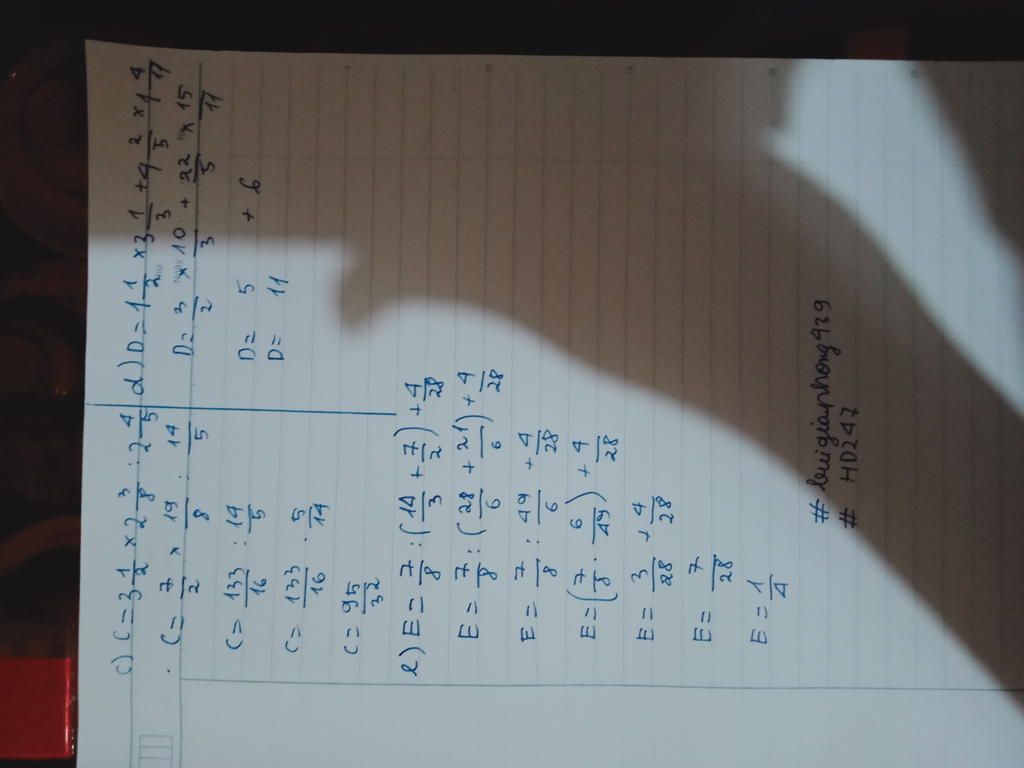 c) C = 3 1/2 × 2 3/8 : 2 4/5
C = 7/2 × 19/8 : 14/5
C = 133/16 : 14/5
C = 133/16 . 5/14
C = 95/32
d) D = 1 1/2 × 3 1/3 + 4 2/5 × 1 4/11
D = 3/2 × 10/3 + 22/5 × 15/11
D = 5 + 6
D = 11
e) E = 7/8 : (14/3 + 7/2) + 4/28
E = 7/8 : (28/6 + 21/6) + 4/28
E = 7/8 : 49/6 + 4/28
E = (7/8 . 6/49) + 4/28
E = 3/28 + 4/28
E = 7/28
E = 1/4
#buigiaphong439
# HD247